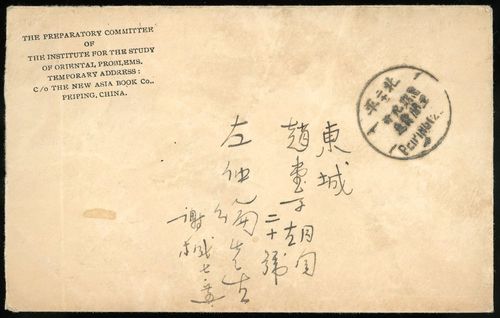 THE PREPARATORY COMMITTEE
OF
THE INSTITUTE FOR THE STUDY
OF ORIENTAL PROBLEMS.
TEMPORARY ADDRESS:
C/O THE NEW ASIA BOOK CO.,
PEIPING, CHINA.
北平
PEIPING
東城
趙堂子胡同
二十號
左仲
先生
謝